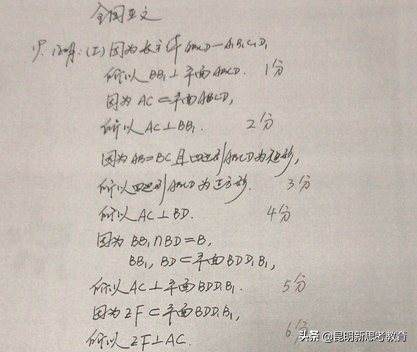 全国亚文
只. 证明: (I) 因为长方体 ABCD-A₁B₁C₁D₁
所以 BB₁⊥平面ABCD. 1分
因为 AC⊂平面ABCD,
所以 AC⊥BB₁. 2分
因为 AB=BC 且四边形ABCD为矩形,
所以四边形ABCD为正方形. 3分
所以 AC⊥BD. 4分
因为 BB₁∩BD=B,
BB₁, BD⊂平面BDD₁B₁,
所以 AC⊥平面BDD₁B₁, 5分
因为 EF⊂平面BDD₁B₁,
所以 EF⊥AC. 6分
头条 @昆明新思考教育